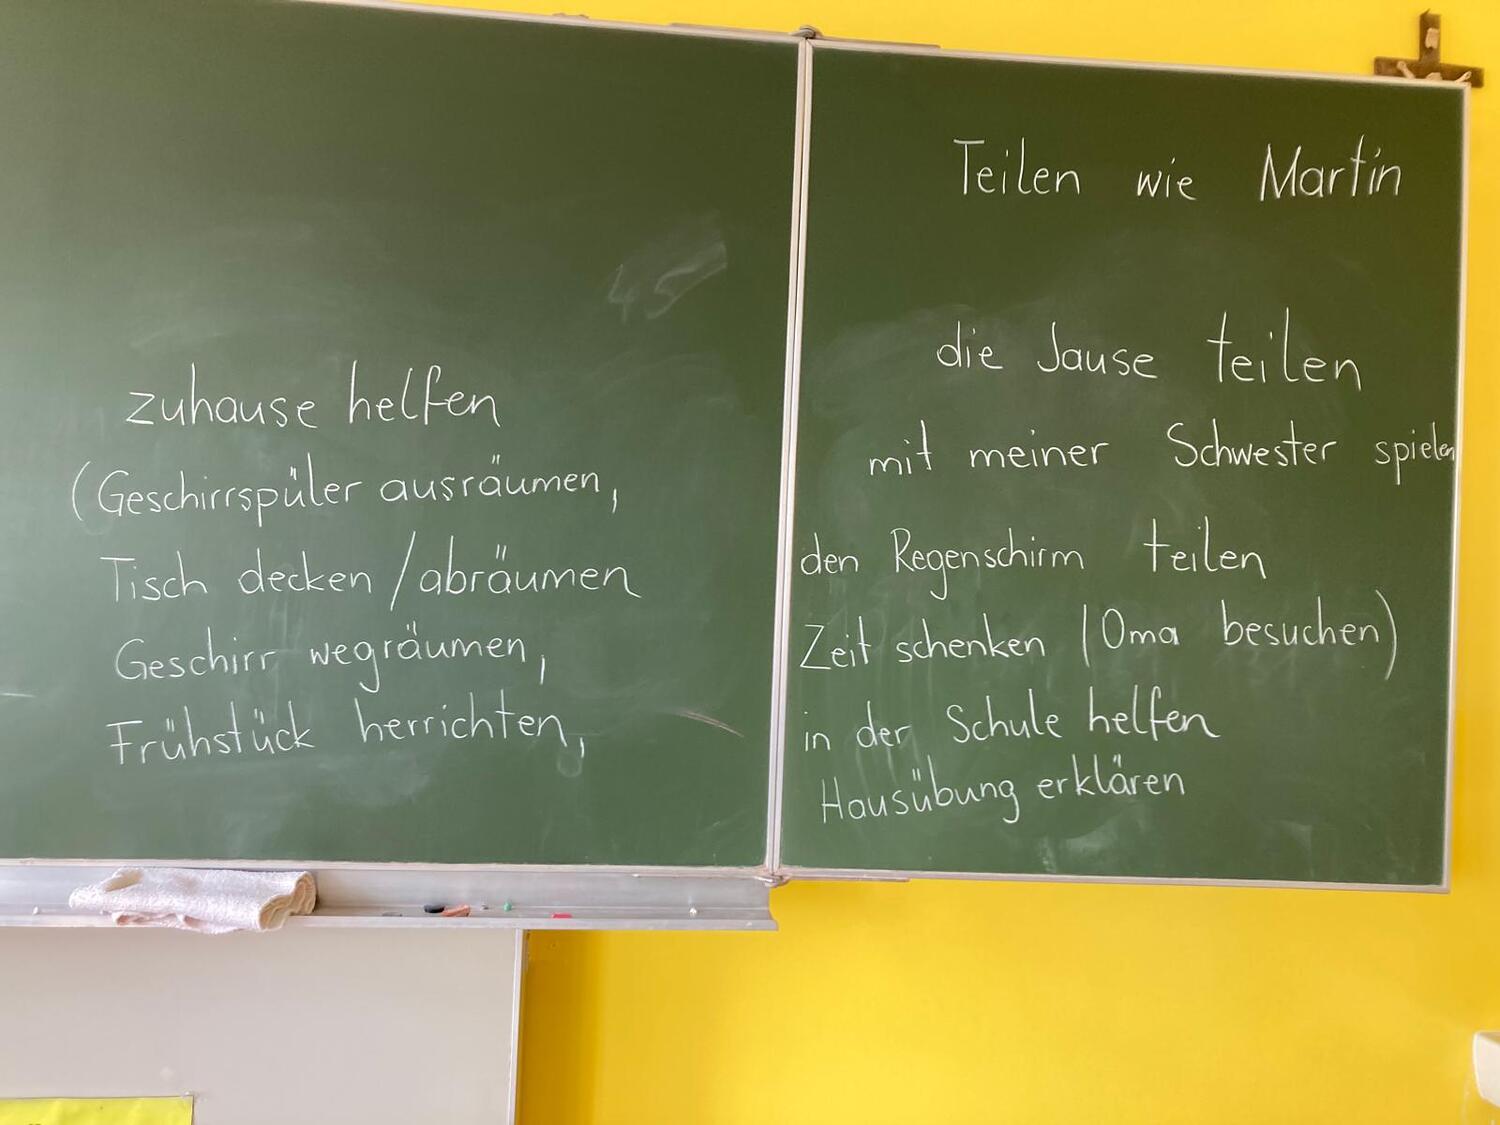 Teilen wie Martin
die Jause teilen
mit meiner Schwester spielen
den Regenschirm teilen
Zeit schenken (Oma besuchen)
in der Schule helfen
Hausübung erklären
zuhause helfen
(Geschirrspüler ausräumen,
Tisch decken / abräumen
Geschirr wegräumen,
Frühstück herrichten,